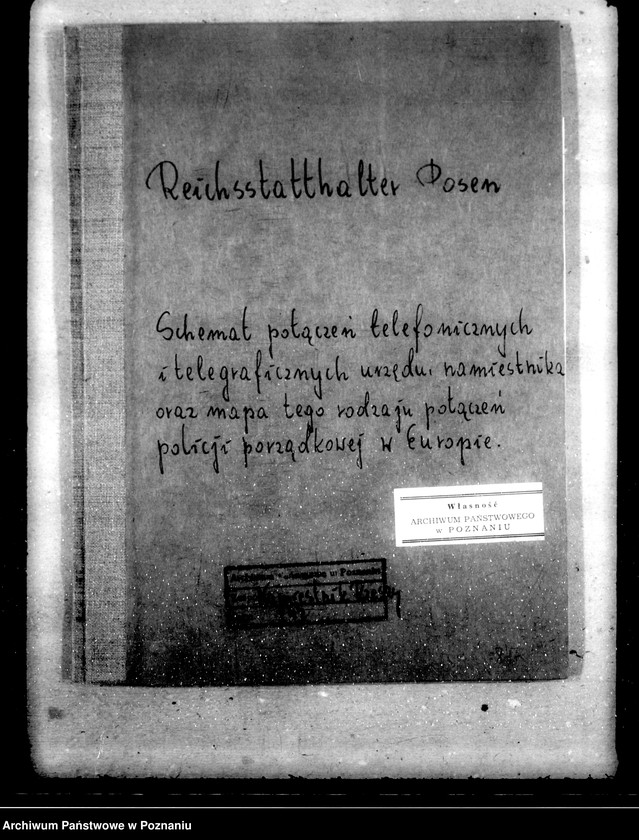 Reichsstatthalter Posen
Schemat połączeń telefonicznych
i telegraficznych urzędu namiestnika
oraz mapa tego rodzaju połączeń
policji porządkowej w Europie.
Własność
ARCHIWUM PAŃSTWOWEGO
W POZNANIU
w Poznaniu
Archiwum Państwowe w Poznaniu